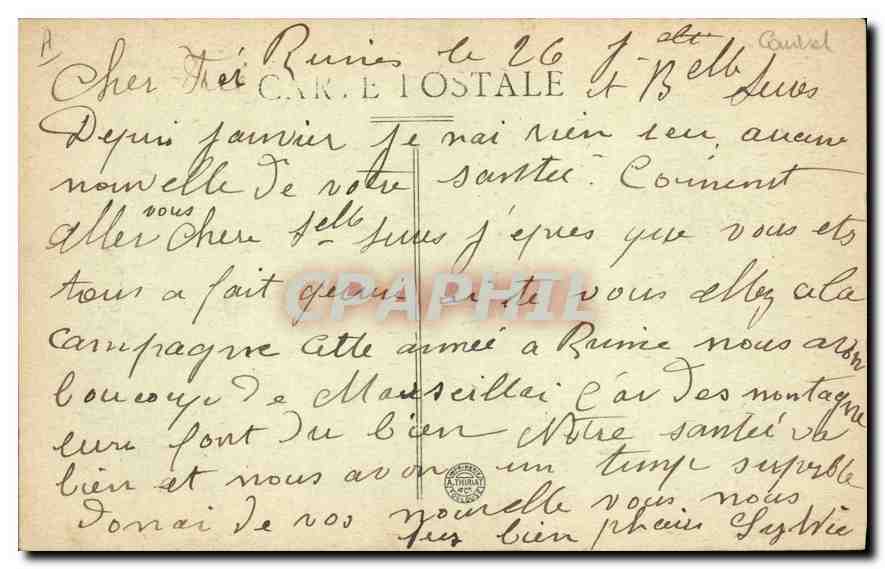 A
Ruines le 26
Cher Fré et Belle Seurs
CARTE POSTALE
Depui janvier je nai rien seu aucune
nouvelle de votre santée. Coment
aller vous chere Belle Seurs j'espes que vous ets
tous a fait et te vous allez a la
campagne cette année a Ruine nous avon
boucoup de Marseillai l'air des montagne
leur font du bien Notre santée va
bien et nous avon un temp superble
donai de vos nouvelle vous nous
fez bien plaisir Sylvie
CPAPHIL
IMPRIMERIE
A. THIRIAT
& Cie
TOULOUSE